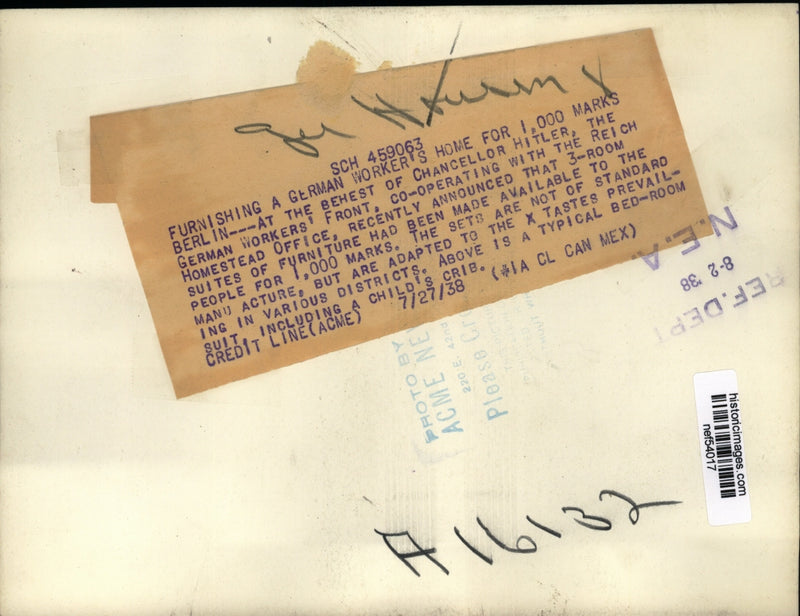 Ger Housing
SCH 459063
FURNISHING A GERMAN WORKER'S HOME FOR 1,000 MARKS
BERLIN---AT THE BEHEST OF CHANCELLOR HITLER, THE
GERMAN WORKERS' FRONT, CO-OPERATING WITH THE REICH
HOMESTEAD OFFICE, RECENTLY ANNOUNCED THAT 3-ROOM
SUITES OF FURNITURE HAD BEEN MADE AVAILABLE TO THE
PEOPLE FOR 1,000 MARKS. THE SETS ARE NOT OF STANDARD
MANU ACTURE, BUT ARE ADAPTED TO THE X TASTES PREVAIL-
ING IN VARIOUS DISTRICTS. ABOVE IS A TYPICAL BED-ROOM
SUIT, INCLUDING A CHILD'S CRIB.
CREDIT LINE(ACME) 7/27/38 (#1A CL CAN MEX)
N.E.A.
8-2 '38
REF. DEPT
PHOTO BY
ACME NEW
220 E. 42nd
Please Cre
historicimages.com
nef54017
A 16132